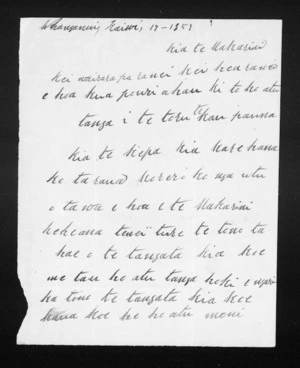 Whanganui, Kaiwi, 17-1851
Kia te Makarini
kei wairarapa ranei kei hea ranei
e hoa kua pouri ahau ki te ho atu
taua i te toru te kau pauna
kia te Kepa kia
ko taraua ko nga utu
o tawa e hoa e te Makarini
koheana tenei ture te tono ta
hae o te tangata kia koe
me tau ho atu taua hoki e ngari
ka tono te tangata kia koe
kaua koe he ho atu moni